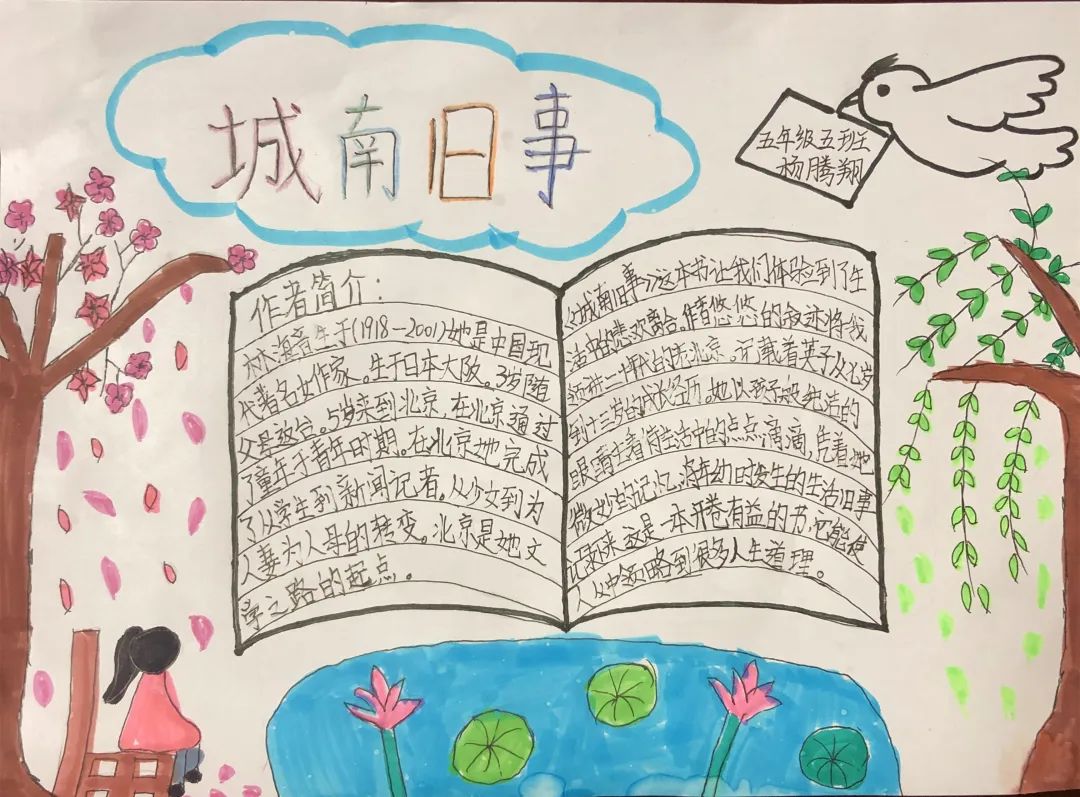 城南旧事
五年级五班
杨腾翔
作者简介：
林海音生于(1918—2001)她是中国现
代著名女作家。生于日本大阪。3岁随
父母返台。5岁来到北京,在北京通过
了童年于青年时期。在北京她完成
了从学生到新闻记者。从少女到为
人妻为人母的转变。北京是她文
学之路的起点。
《城南旧事》这本书让我们体验到了生
活中的悲欢离合。作者悠悠的叙述将我
领进二十年代的老北京。记载着英子从七岁
到十三岁的成长经历。她以孩子般纯洁的
眼看着生活中的点点滴滴,凭着她
微妙的记忆,将年幼时发生的生活旧事
记录下来。这是一本开卷有益的书,它能使
人从中领略到很多人生道理。